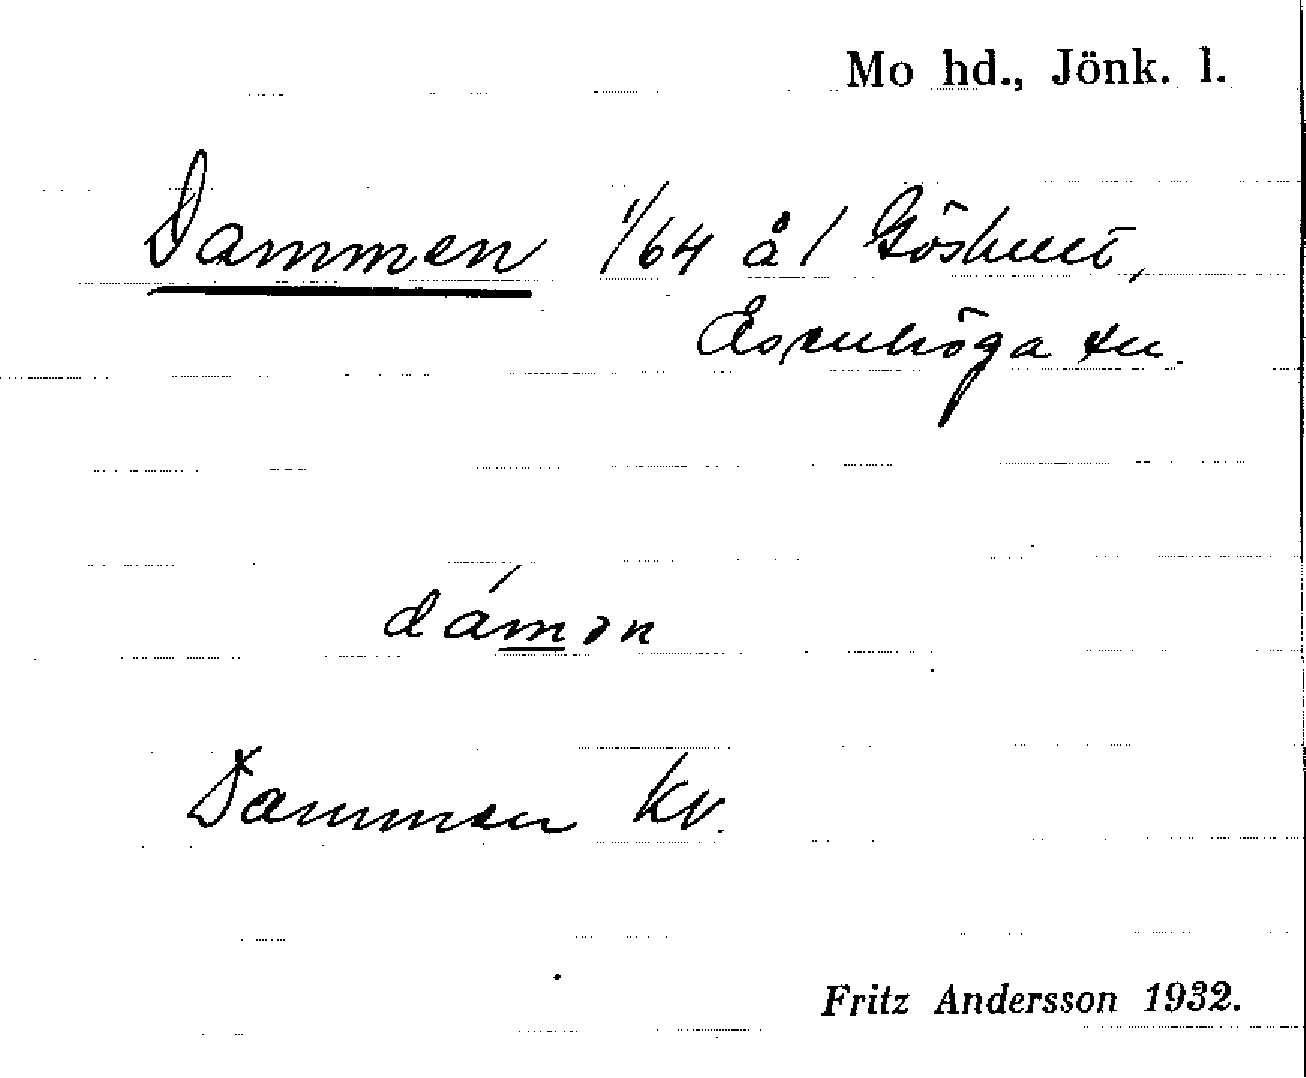 Mo hd., Jönk. l.
Dammen 1/64 å 1 Göshult,
Åsenhöga sn.
dámən
Dammen kv.
Fritz Andersson 1932.